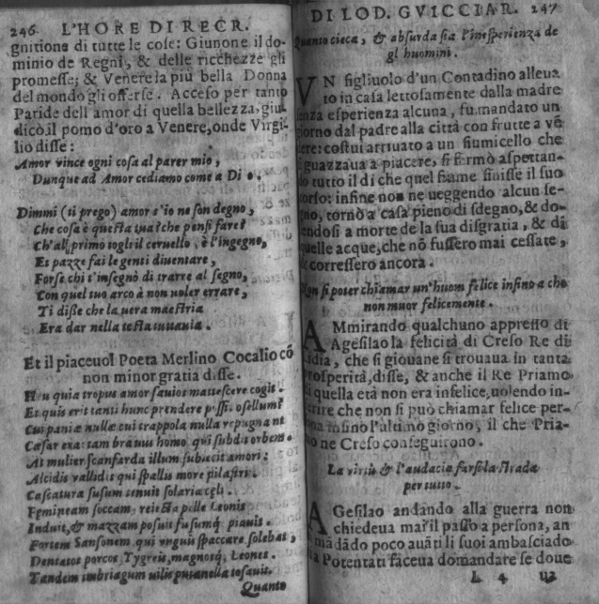 246. L'HORE DI RECR.
gnitione di tutte le cose: Giunone il do-
minio de Regni, & delle ricchezze gli
promesse; & Venere la più bella Donna
del mondo gli offerse. Acceso per tanto
Paride dell'amor di quella bellezza, giu-
dicò il pomo d'oro a Venere, onde Virgi-
lio disse:
Amor vince ogni cosa al parer mio,
Dunque ad Amor cediamo come a Dio.
Dimmi (ti prego) amor s'io ne son degno,
Che cosa è questa tua? che pensi fare?
Ch'al primo togli il ceruello, è l'ingegno,
Et pazze fai le genti diuentare,
Forse chi t'insegnò di trarre al segno,
Con quel tuo arco à non uoler errare,
Ti disse che la uera maestria
Era dar nella testa tuttauia.
Et il piaceuol Poeta Merlino Cocalio cō
non minor gratia disse.
Heu quia tropus amor sauios mattescere cogit.
Et quis erit tanti hunc prendere possit osellum?
Cui paniæ nullæ cui trappola nulla repugnant
Cæsar exartam brauus homo, qui subdit orbem.
At mulier scanfarda illum subiecit amori:
Alcidis validis qui spallis more pilastri.
Cascatura susum tenuit solaria cęli.
Femineam soccam, reiecta pelle Leonis
Induit, & mazzam posuit fusumq; piauit.
Fortem Sansonem, qui vnguis spaccare solebat,
Dentatos porcos, Tygreis, magnosq, Leones.
Tandem imbriagum uilis putanella tosauit.
Quanto
DI LOD. GVICCIAR. 247
Quanto cieca, & absurda sia l'inesperienza de
gl'huomini.
VN figliuolo d'un Contadino alleua
to in casa lettosamente dalla madre
senza esperienza alcuna, fu mandato un
giorno dal padre alla città con frutte a vē
dere: costui arriuato a un fiumicello che
si guazzaua a piacere, si fermò aspettan-
do tutto il dì che quel fiume finisse il suo
corso: infine non ne ueggendo alcun se-
gno, tornò a casa pieno di sdegno, & do-
lendosi a morte de la sua disgratia, & di
quelle acque, che nō fussero mai cessate,
& corressero ancora.
Non si poter chiamar un'huom felice infino a che
non muor felicemente.
AMmirando qualchuno appresso di
Agesilao la felicità di Creso Re di
Lidia, che si giouane si trouaua in tanta
prosperità, disse, & anche il Re Priamo
di quella età non era infelice, uolendo in-
ferire che non si può chiamar felice per-
sona infino l'ultimo giorno, il che Pria-
mo ne Creso conseguirono.
La virtù & l'audacia farsi la strada
per tutto.
AGesilao andando alla guerra non
chiedeua mai il passo a persona, an
mādādo poco auāti li suoi ambasciado
a Potentati faceua domandare se doue
L 4 ua